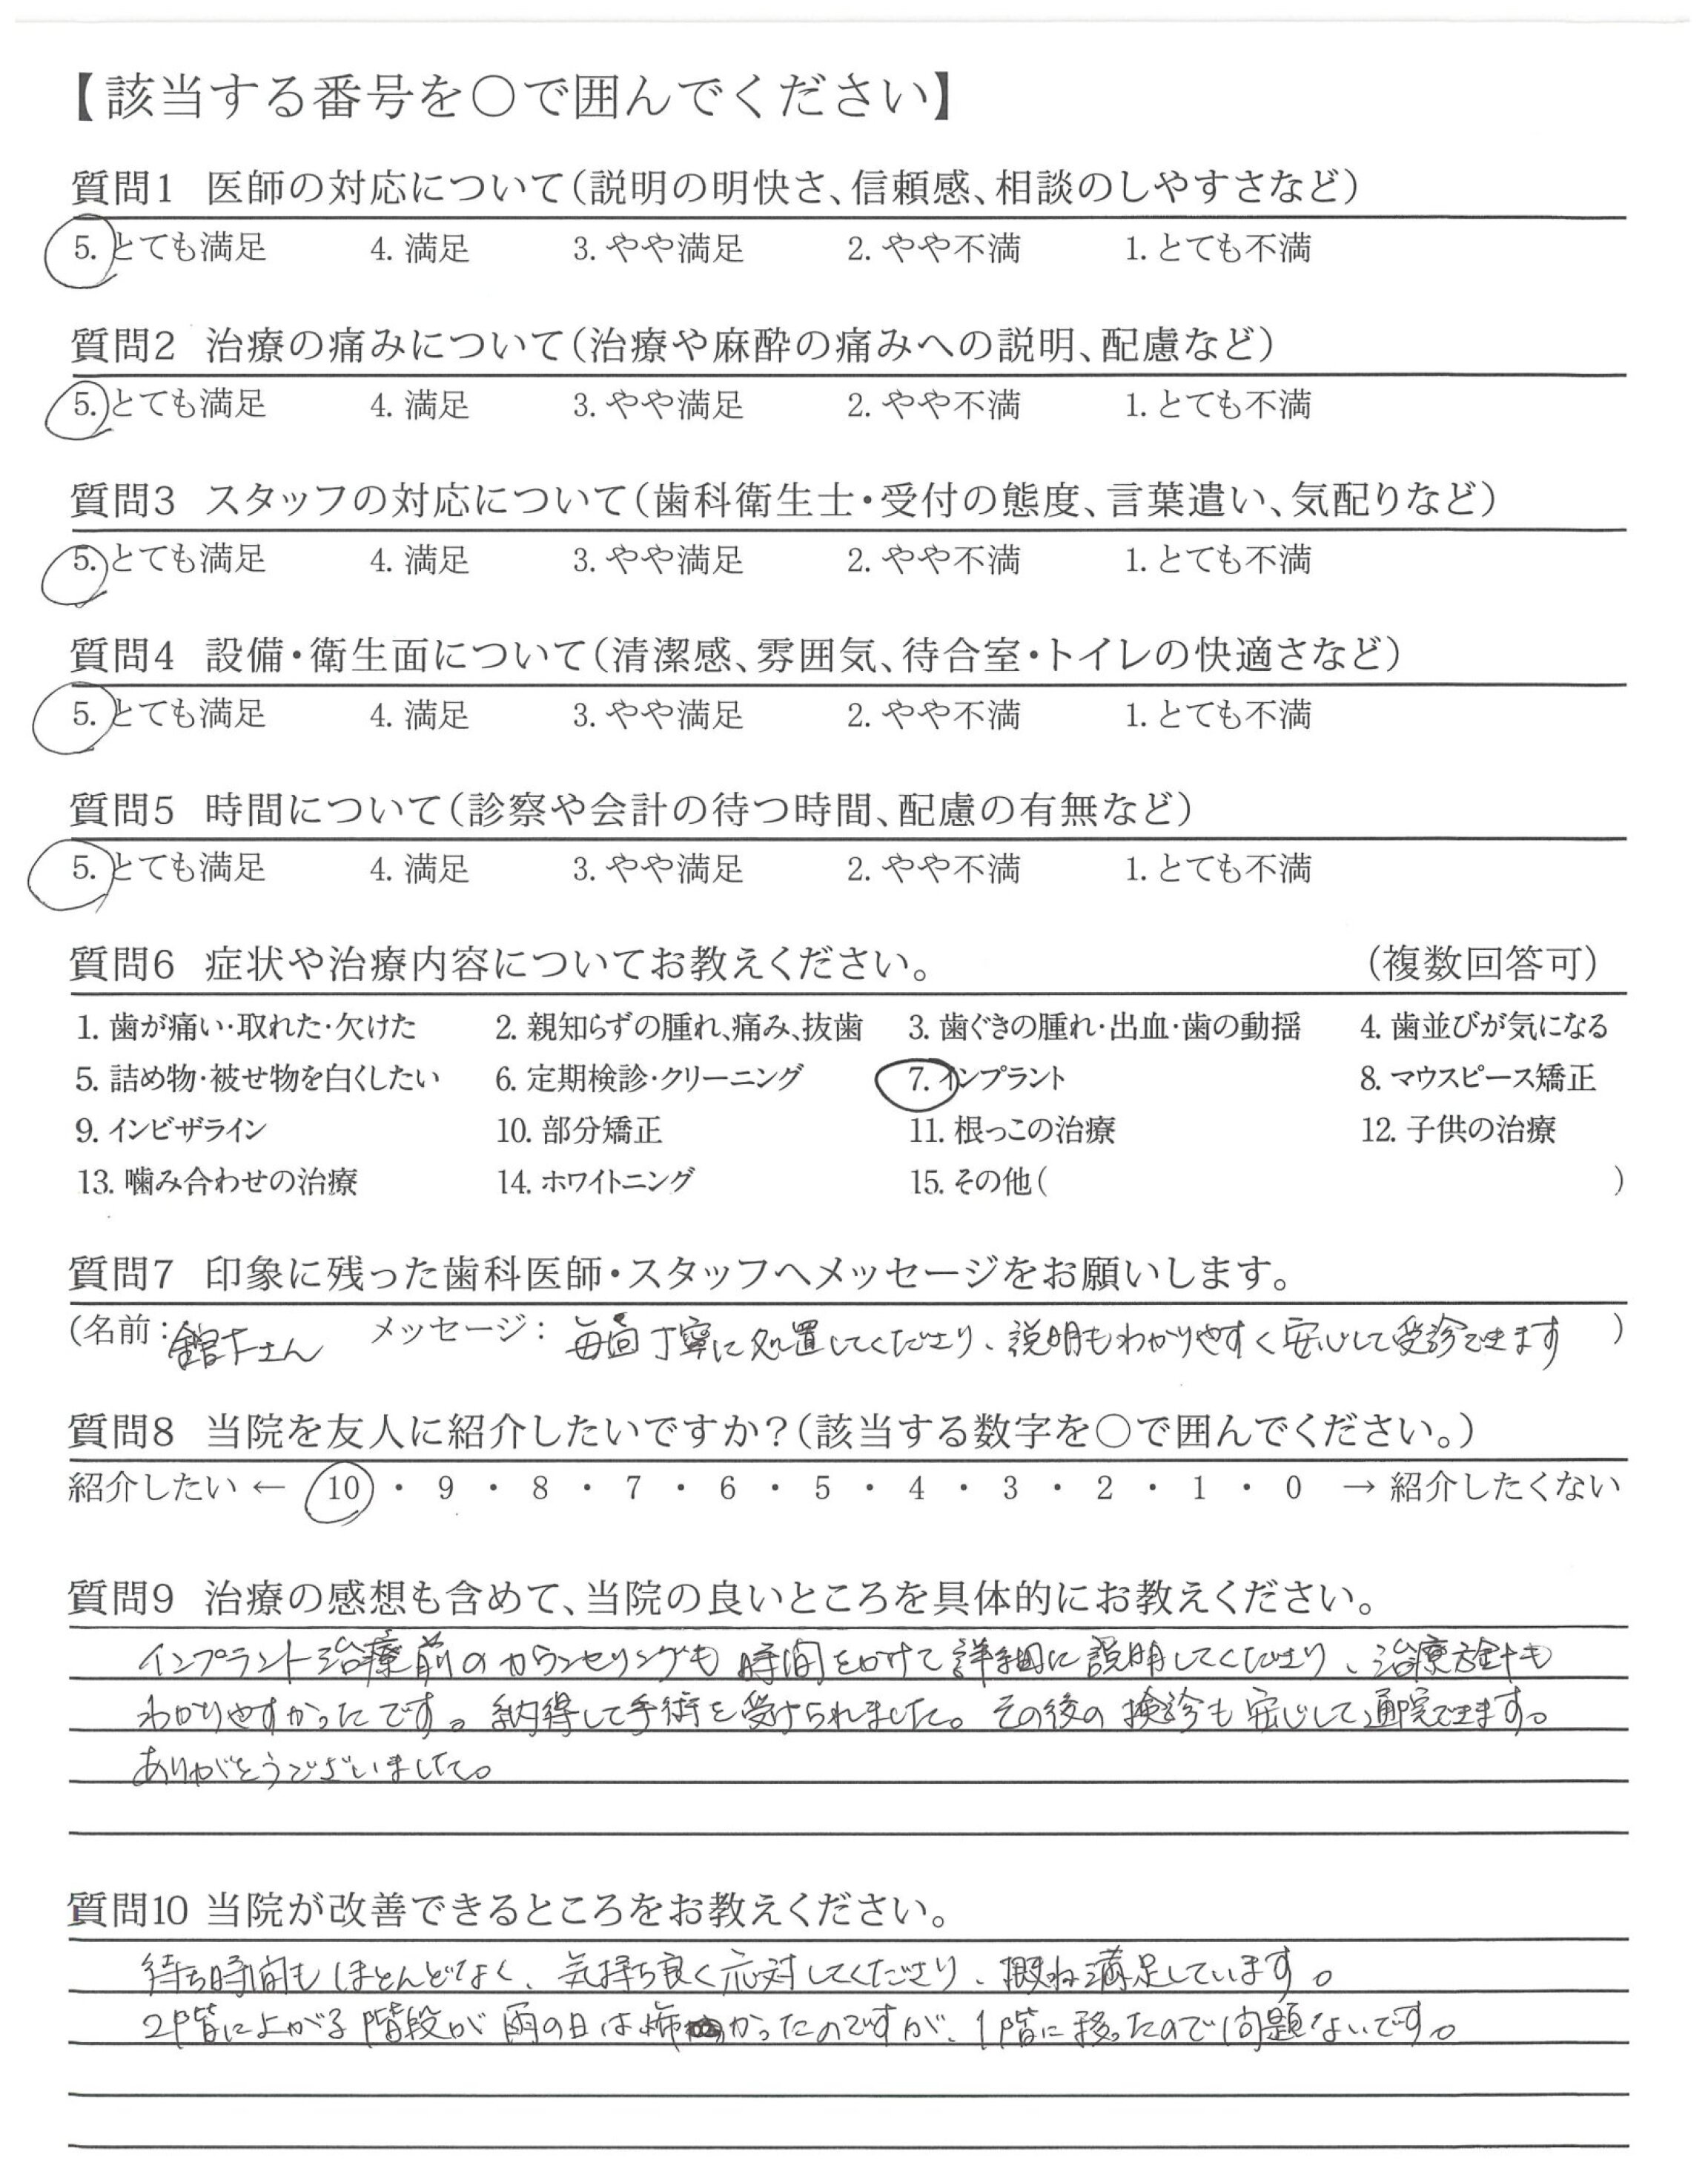 【該当する番号を○で囲んでください】
質問1 医師の対応について(説明の明快さ、信頼感、相談のしやすさなど)
5. とても満足 4. 満足 3. やや満足 2. やや不満 1. とても不満
質問2 治療の痛みについて(治療や麻酔の痛みへの説明、配慮など)
5. とても満足 4. 満足 3. やや満足 2. やや不満 1. とても不満
質問3 スタッフの対応について(歯科衛生士・受付の態度、言葉遣い、気配りなど)
5. とても満足 4. 満足 3. やや満足 2. やや不満 1. とても不満
質問4 設備・衛生面について(清潔感、雰囲気、待合室・トイレの快適さなど)
5. とても満足 4. 満足 3. やや満足 2. やや不満 1. とても不満
質問5 時間について(診察や会計の待つ時間、配慮の有無など)
5. とても満足 4. 満足 3. やや満足 2. やや不満 1. とても不満
質問6 症状や治療内容についてお教えください。 (複数回答可)
1. 歯が痛い・取れた・欠けた 2. 親知らずの腫れ、痛み、抜歯 3. 歯ぐきの腫れ・出血・歯の動揺 4. 歯並びが気になる
5. 詰め物・被せ物を白くしたい 6. 定期検診・クリーニング 7. インプラント 8. マウスピース矯正
9. インビザライン 10. 部分矯正 11. 根っこの治療 12. 子供の治療
13. 噛み合わせの治療 14. ホワイトニング 15. その他( )
質問7 印象に残った歯科医師・スタッフへメッセージをお願いします。
(名前: 舘下さん メッセージ: 毎回丁寧に処置してくださり、説明もわかりやすく安心して受診できます )
質問8 当院を友人に紹介したいですか?(該当する数字を○で囲んでください。)
紹介したい ← 10 ・ 9 ・ 8 ・ 7 ・ 6 ・ 5 ・ 4 ・ 3 ・ 2 ・ 1 ・ 0 → 紹介したくない
質問9 治療の感想も含めて、当院の良いところを具体的にお教えください。
インプラント治療前のカウンセリングも時間をかけて詳細に説明してくださり、治療方針も
わかりやすかったです。納得して手術を受けられました。その後の検診も安心して通院できます。
ありがとうございました。
質問10 当院が改善できるところをお教えください。
待ち時間もほとんどなく、気持ち良く応対してくださり、概ね満足しています。
2階に上がる階段が雨の日は怖かったのですが、1階に移ったので問題ないです。